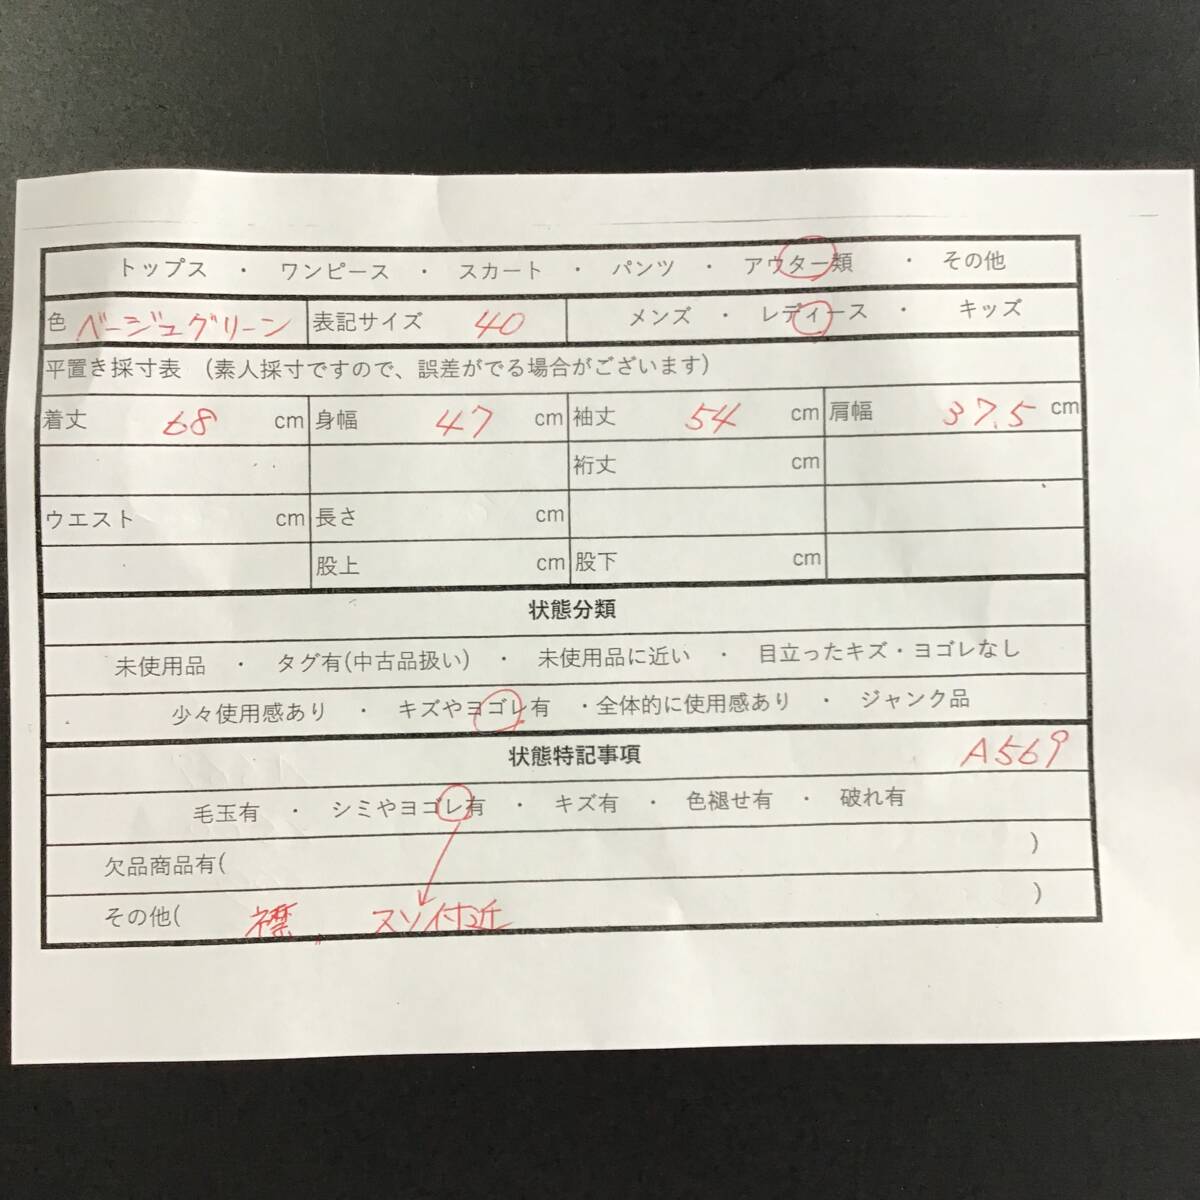 トップス ・ ワンピース ・ スカート ・ パンツ ・ アウター類 ・ その他
色 ベージュグリーン 表記サイズ 40 メンズ ・ レディース ・ キッズ
平置き採寸表 (素人採寸ですので、誤差がでる場合がございます)
着丈 68 cm 身幅 47 cm 袖丈 54 cm 肩幅 37.5 cm
裄丈 cm
ウエスト cm 長さ cm
股上 cm 股下 cm
状態分類
未使用品 ・ タグ有(中古品扱い) ・ 未使用品に近い ・ 目立ったキズ・ヨゴレなし
少々使用感あり ・ キズやヨゴレ有 ・全体的に使用感あり ・ ジャンク品
状態特記事項 A569
毛玉有 ・ シミやヨゴレ有 ・ キズ有 ・ 色褪せ有 ・ 破れ有
欠品商品有( )
その他( 襟,, スソ付近 )